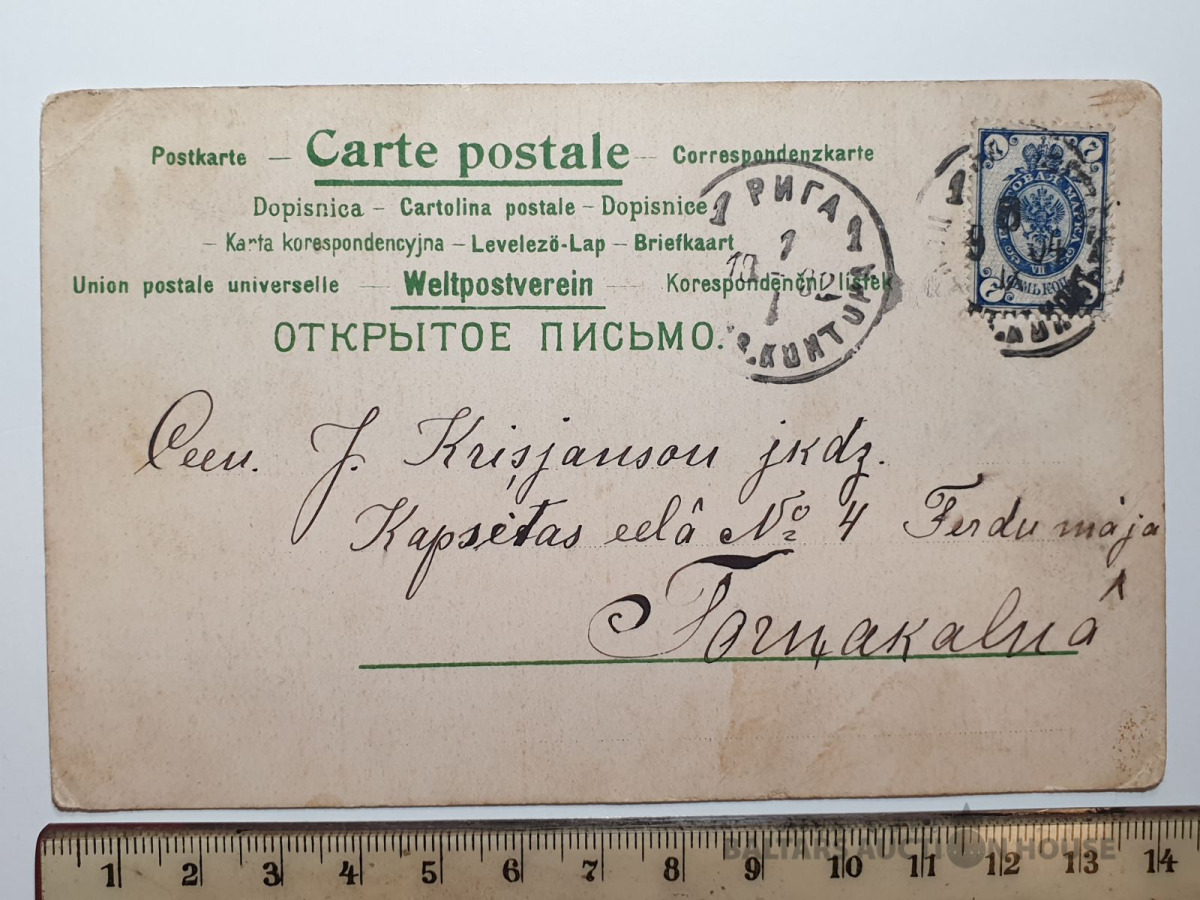 Postkarte — Carte postale — Correspondenzkarte
Dopisnica — Cartolina postale — Dopisnice
— Karta korespondencyjna — Levelező-Lap — Briefkaart
Union postale universelle — Weltpostverein — Korespondenční lístek
ОТКРЫТОЕ ПИСЬМО.
1 РИГА 1
1
КОНТОРА
7 7
МАРКА
VII
7
04
Ceen. J. Krisjanson jkdz.
Kapsētas eelâ № 4 Ferdu māja
Torņakalnâ
1 2 3 4 5 6 7 8 9 10 11 12 13 14
BALTARS AUCTION HOUSE